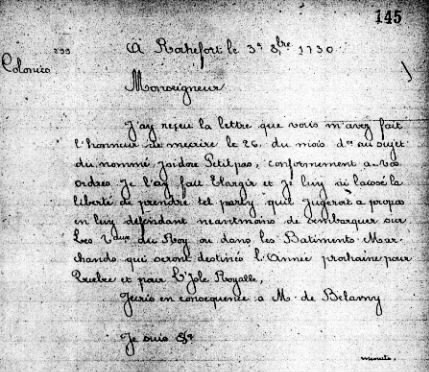 145
Colonies
A Rochefort le 3e 8bre 1730
Monseigneur
J'ay reçeu la lettre que vous m'avez fait
l'honneur de mecrire le 26. du mois dr au sujet
du nommé Isidore Petitpas, conformement a vos
ordres Je l'ay fait Elargir et Je luy ai laissé la
liberté de prendre tel party quil Jugeroit a propos
en luy deffendant neantmoins de sembarquer sur
Les Vaux du Roy ou dans les Batiments Mar
chands qui seront destinés l'année prochaine pour
Quebec et pour L'Isle Royalle,
Jecris en consequence a M. de
Je suis &a
minute.